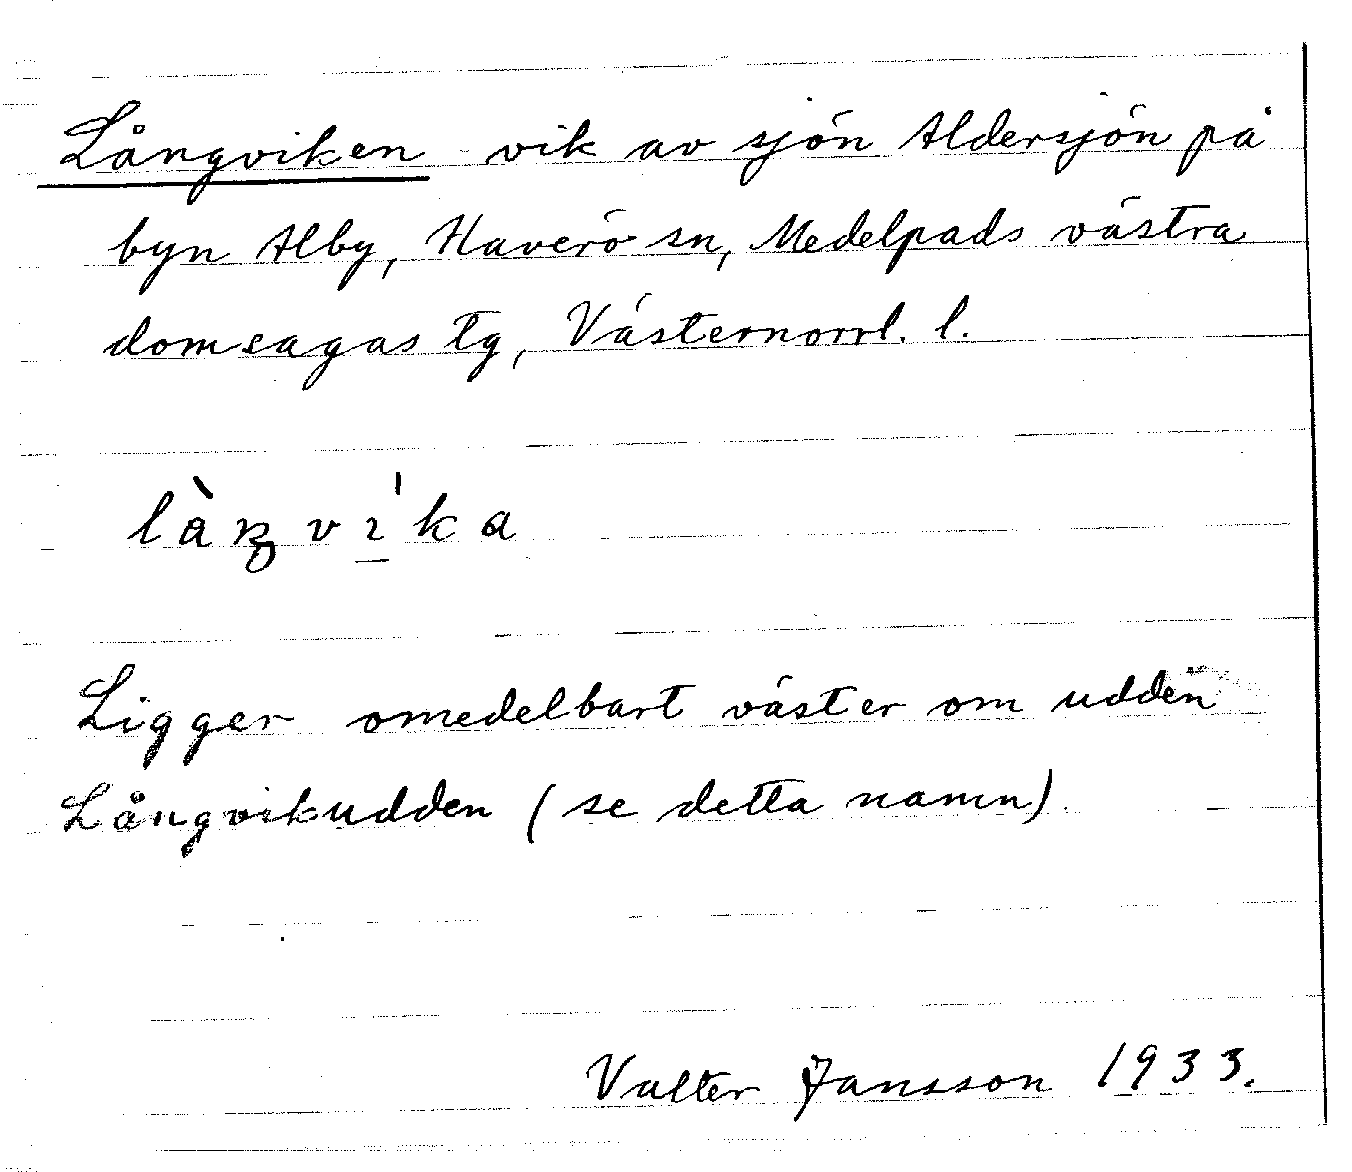 Långviken vik av sjön Aldersjön på
byn Alby, Haverö sn, Medelpads västra
domsagas tg, Västernorrl. l.
là̀ŋvı̱̍ka
Ligger omedelbart väster om udden
Långvikudden (se detta namn).
Valter Jansson 1933.